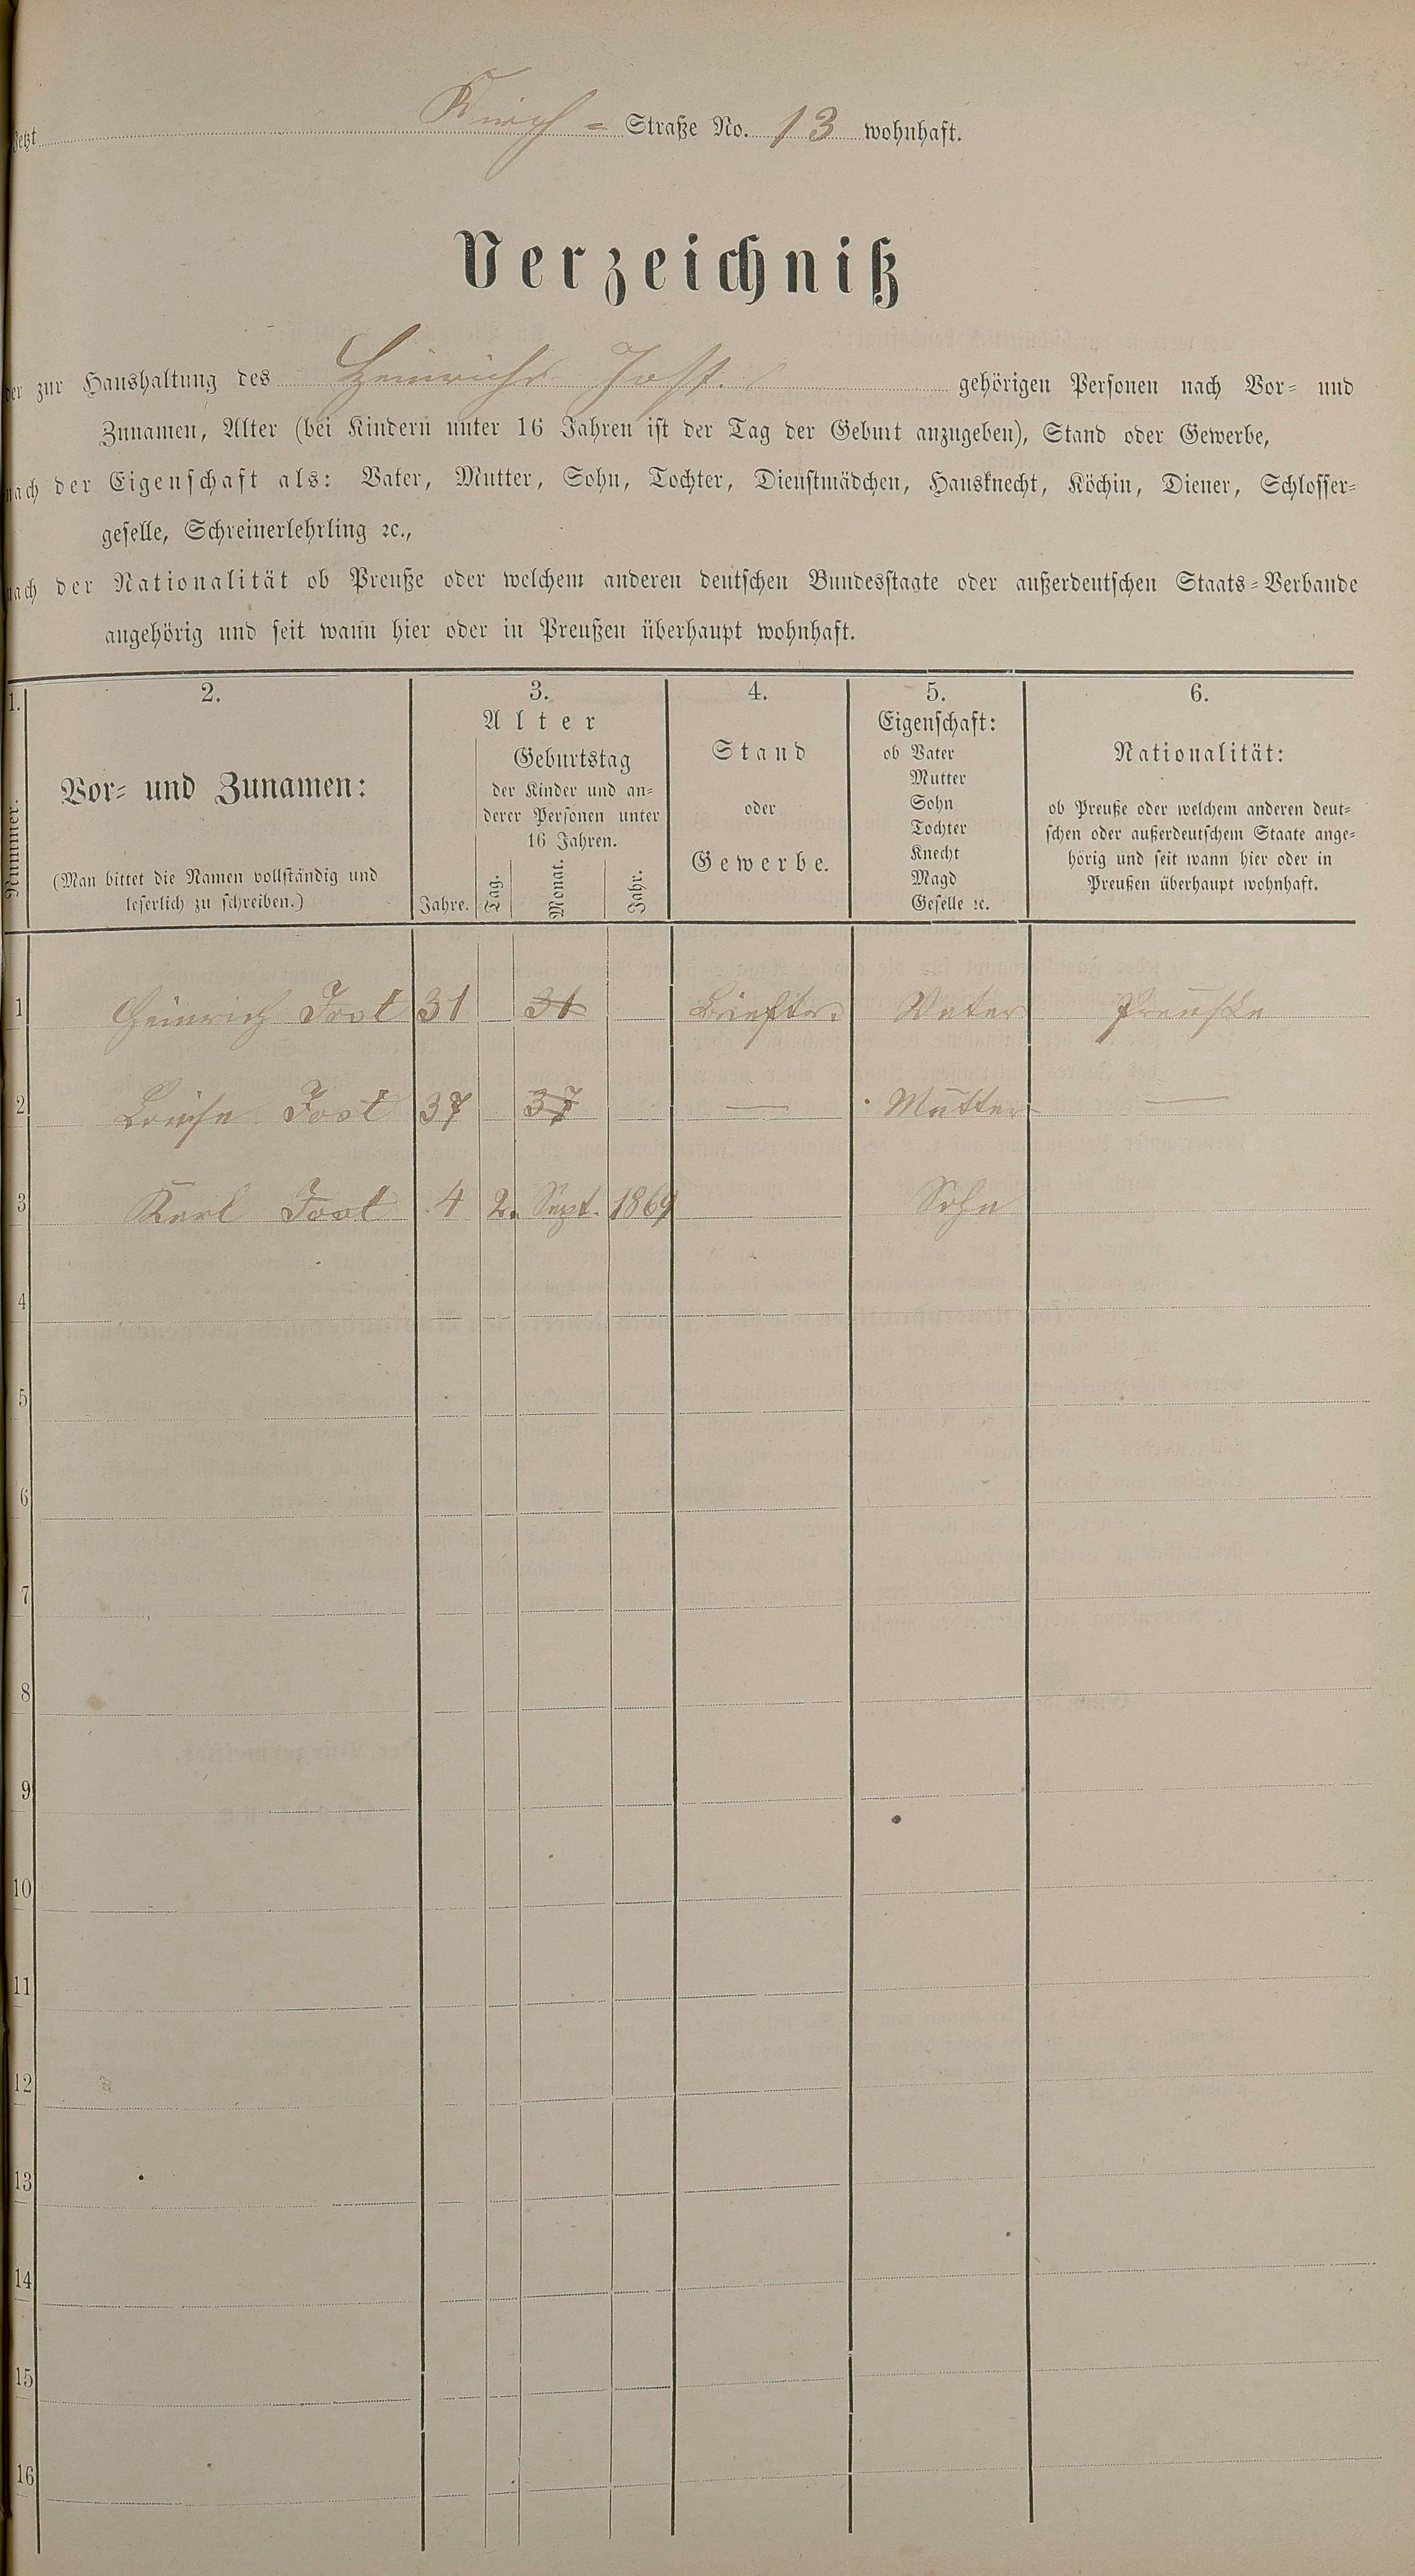 Jetzt Kirch = Straße No. 13 wohnhaft.
Verzeichniß
der zur Haushaltung des Heinrich Jost gehörigen Personen nach Vor= und
Zunamen, Alter (bei Kindern unter 16 Jahren ist der Tag der Geburt anzugeben), Stand oder Gewerbe,
nach der Eigenschaft als: Vater, Mutter, Sohn, Tochter, Dienstmädchen, Hausknecht, Köchin, Diener, Schlosser=
geselle, Schreinerlehrling ꝛc.,
nach der Nationalität ob Preuße oder welchem anderen deutschen Bundesstaate oder außerdeutschen Staats=Verbande
angehörig und seit wann hier oder in Preußen überhaupt wohnhaft.
1.
Nummer.
2.
Vor= und Zunamen:
(Man bittet die Namen vollständig und
leserlich zu schreiben.)
3.
Alter
Jahre.
Geburtstag
der Kinder und an=
derer Personen unter
16 Jahren.
Tag. Monat. Jahr.
4.
Stand
oder
Gewerbe.
5.
Eigenschaft:
ob Vater
Mutter
Sohn
Tochter
Knecht
Magd
Geselle ꝛc.
6.
Nationalität:
ob Preuße oder welchem anderen deut=
schen oder außerdeutschem Staate ange=
hörig und seit wann hier oder in
Preußen überhaupt wohnhaft.
1 Heinrich Jost 31 31 Vater Preuße
2 Louise Jost 37 37 — Mutter —
3 Karl Jost 4 2. Sept. 1869 Sohn
4
5
6
7
8
9
10
11
12
13
14
15
16